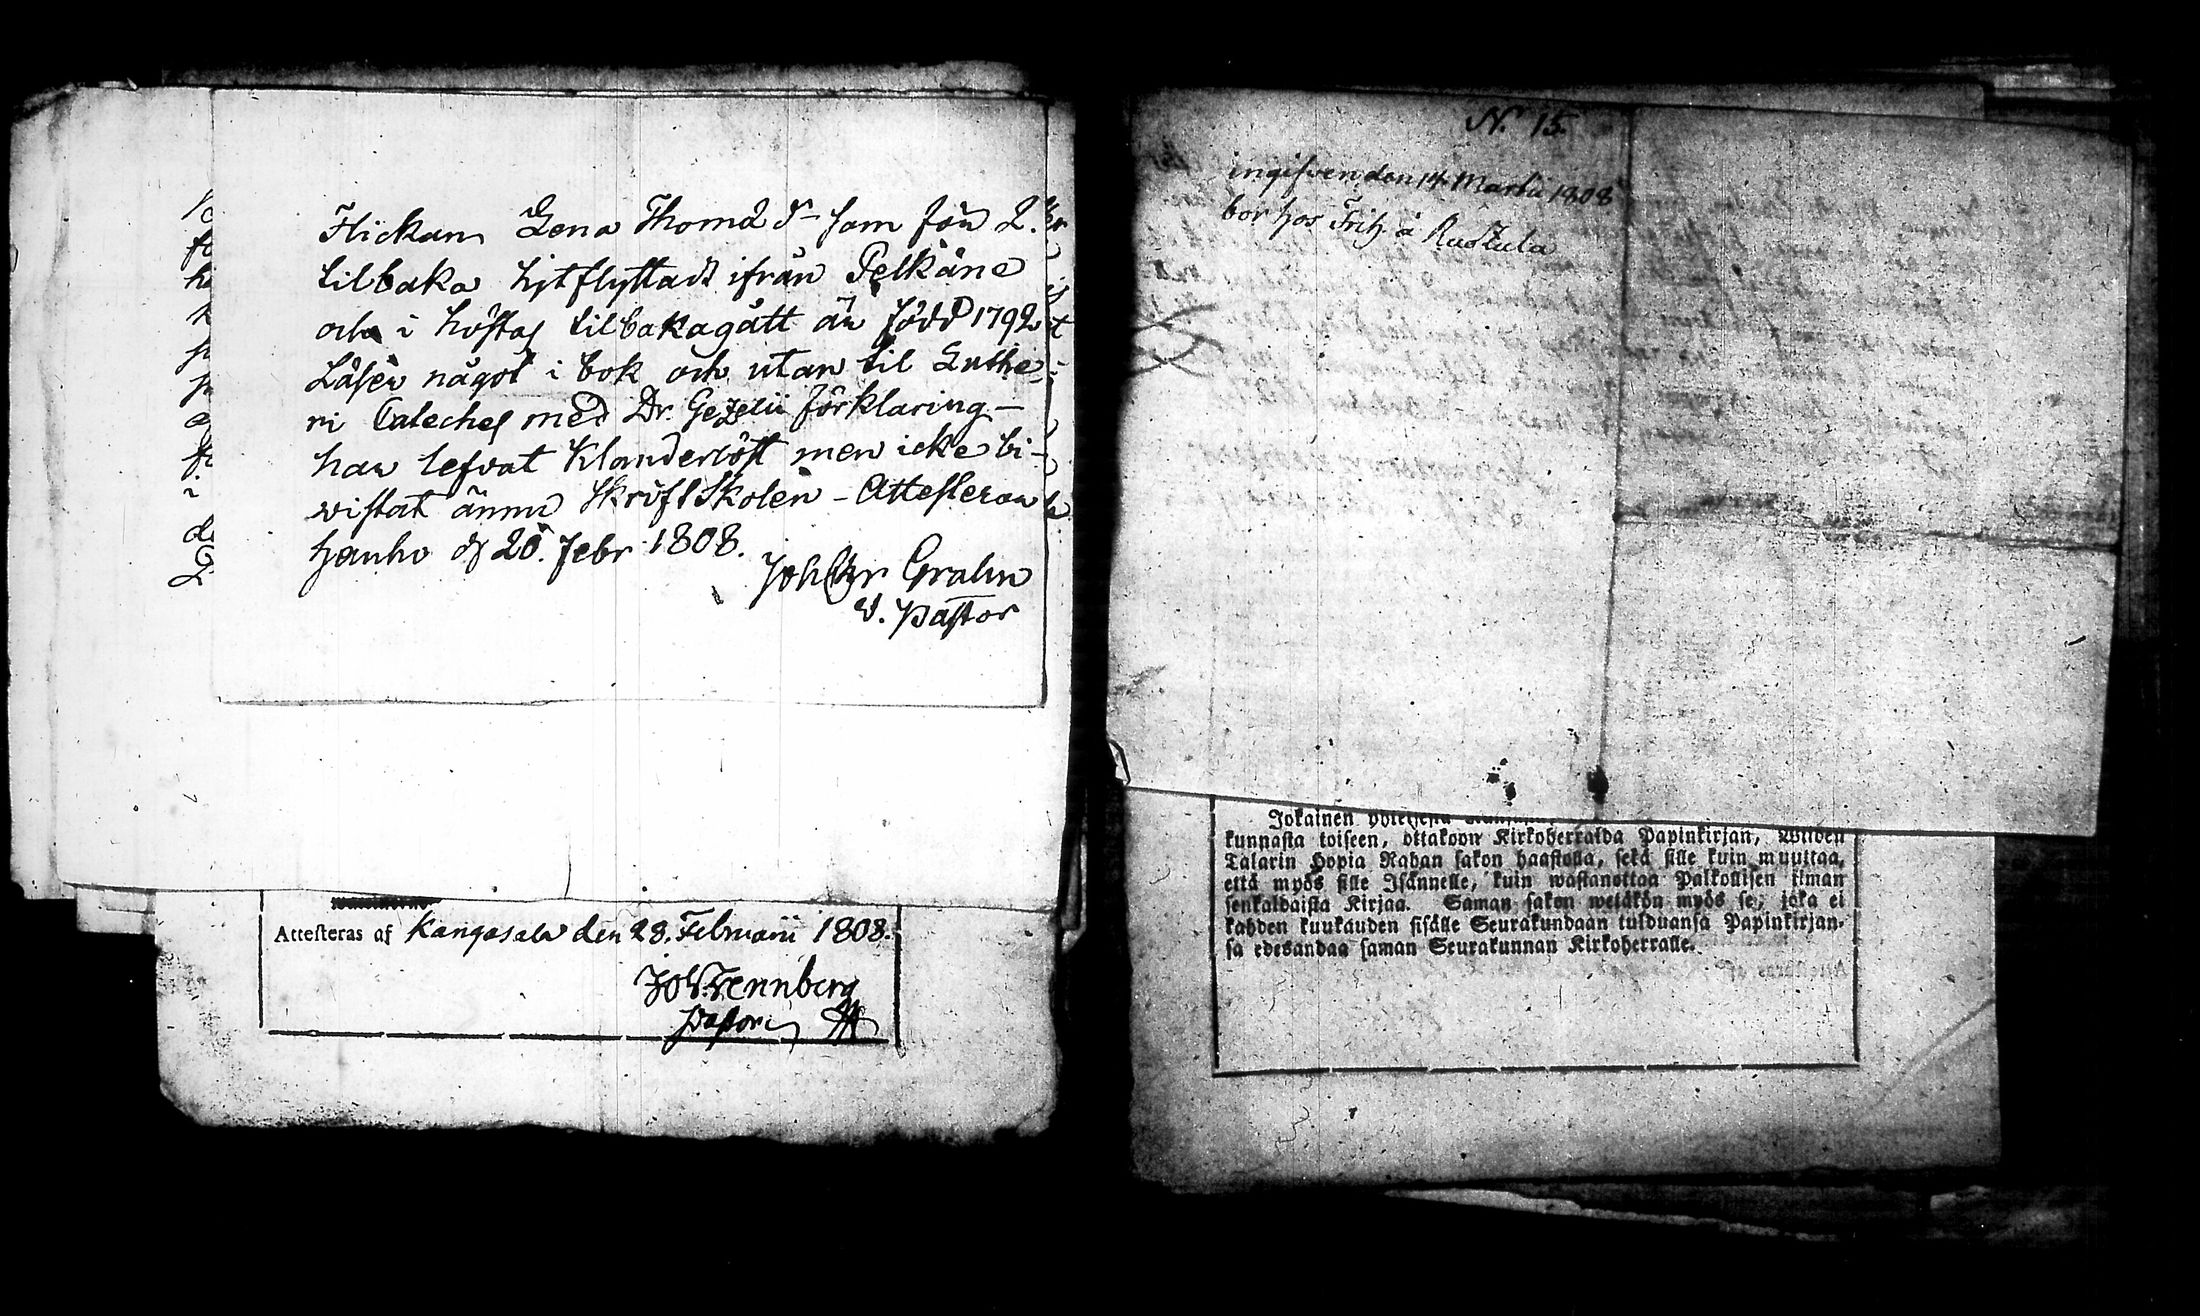 Flickan Lena Thomæ dr som för 2.
tilbaka hitflyttadt ifrån Pelkäne
och i höstas tilbakagått är född 1792
Läser något i bok och utan til Luthe-
ri Cateches med Dr. Gezelii förklaring –
har lefvat klanderlöst men icke bi-
vistat ännu Skriftskolen – Attesteras
Hauho d 20. Febr 1808.
Joh Gralin
v. Pastor
Attesteras af Kangasala den 28. Februarii 1808.
Wennberg
Pastor
N. 15.
ingifven den 14 Martii 1808
bor hos Fritz å
Jokainen
kunnasta toiseen, ottakoon Kirkoherralda Papinkirjan, wiiden
Talarin Hopia Rahan sakon haastolla, sekä sille kuin muuttaa,
että myös sille Isännelle, kuin wastanottaa Palkollisen ilman
senkaldaista Kirjaa. Saman sakon wetäkön myös se, joka ei
kahden kuukauden sisälle Seurakundaan tulduansa Papinkirjan-
sa edesandaa saman Seurakunnan Kirkoherralle.